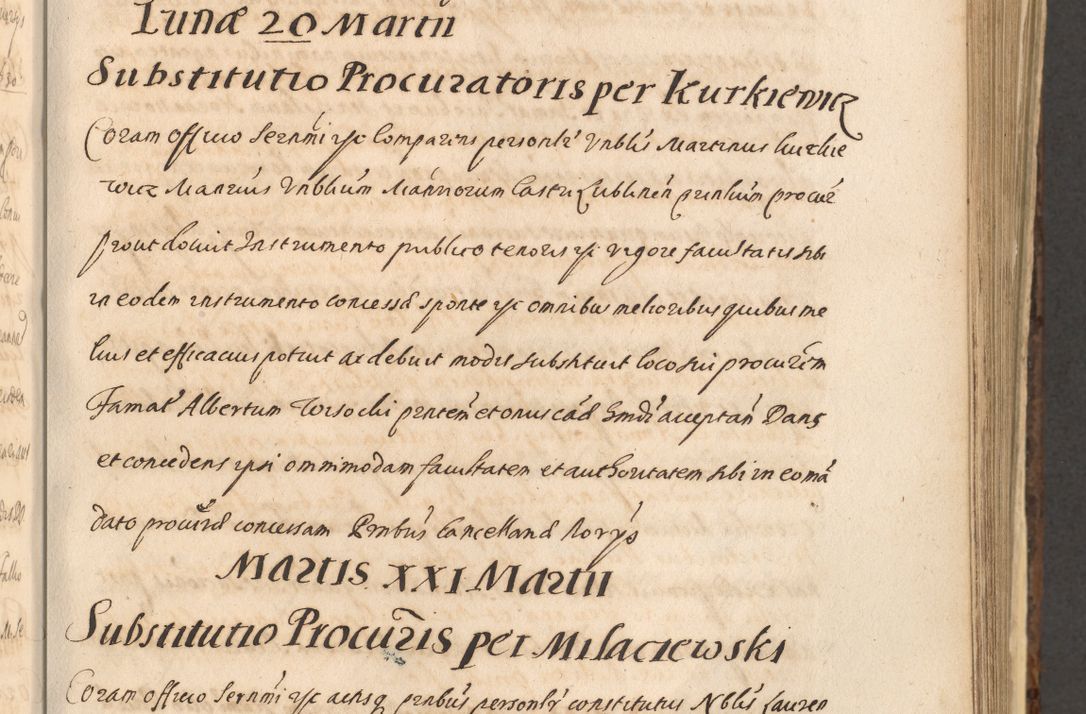 Lunæ 20 Martii
Substitutio Procuratoris per Kurkiewicz
Coram officio Serñmi ꝛc Comparens personlr̃ Vnblis̃ Martinus Kurkie
wicz Manrius Vnblium̃ Mañriorum Castri Lublineñ prnlium̃ procur̃
prout docuit Instrumento publico tenoris ꝛc vigore facultatis sibi
in eodem instrumento concessæ sponte ꝛc omnibus melioribus quibus me
lius et efficacius potuit ac debuit modis substituit loco sui procurem̃
Famat̃ Albertum Wisocki prntem̃ et onus
Dans
et concedens ipsi omnimodam facultatem et authoritatem sibi in eo mã
dato concessam Prntbus̃ Cancelland Norys
Martis XXI Martii
Substitutio Procur̃is per Milaczewski
Coram officio Serñmi ꝛc actisq prntbus̃ personlr̃ constitutus Nblis̃ Lauren